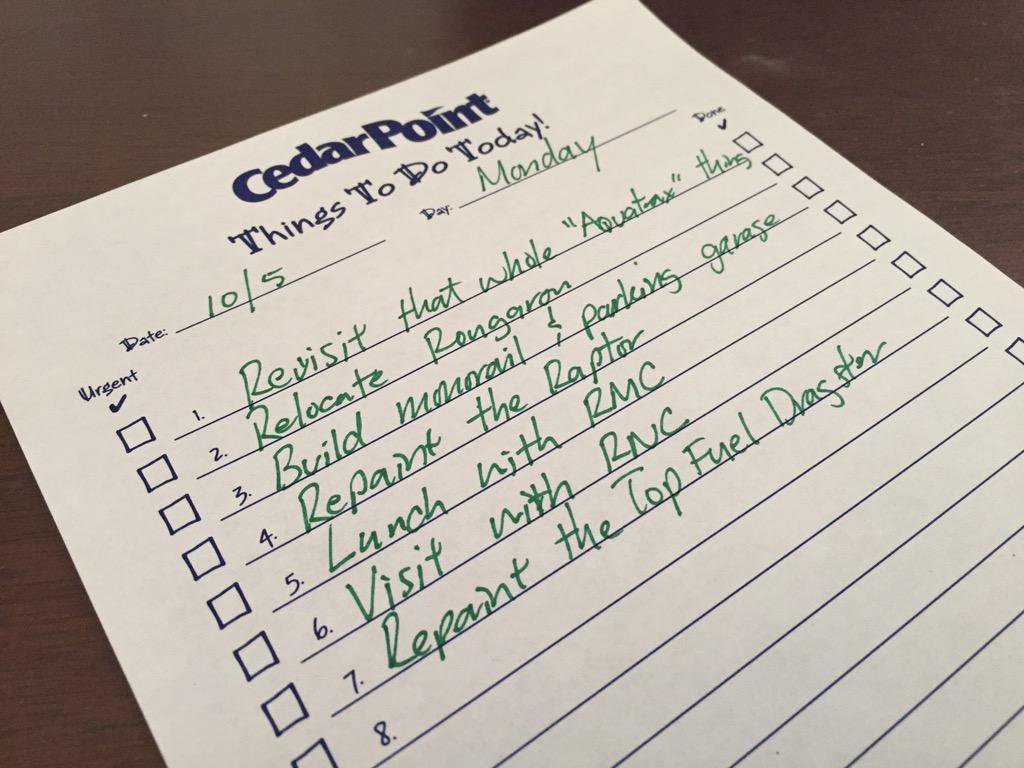 CedarPoint
Things To Do Today!
Date: 10/5 Day: Monday
Urgent Done
1. Revisit that whole "Aquatrax" thing
2. Relocate Rougarou
3. Build monorail & parking garage
4. Repaint the Raptor
5. Lunch with RMC
6. Visit with RNC
7. Repaint the Top Fuel Dragster
8.